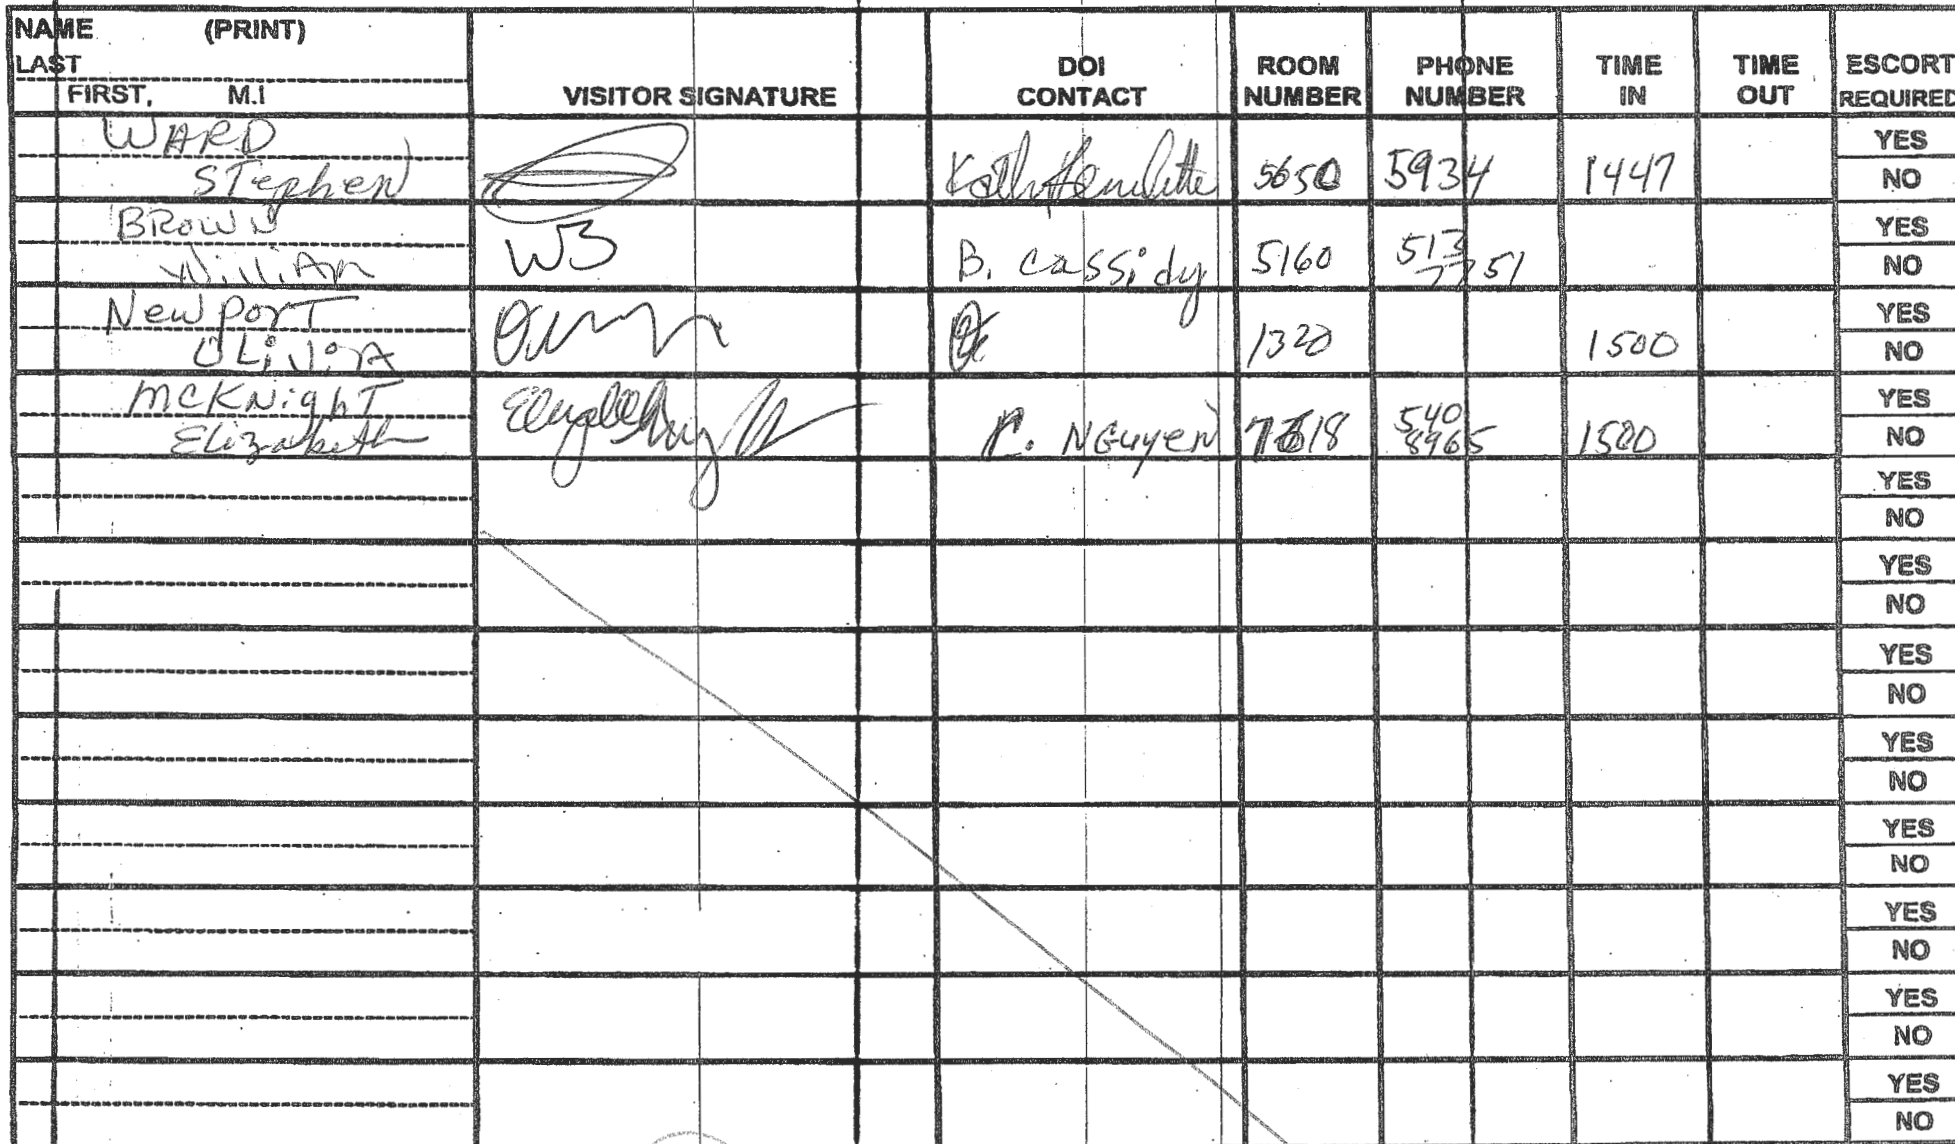 NAME (PRINT)
LAST
FIRST, M.I
VISITOR SIGNATURE
DOI CONTACT
ROOM NUMBER
PHONE NUMBER
TIME IN
TIME OUT
ESCORT REQUIRED
WARD
Stephen 5650 5934 1447
YES
NO
BROWN
William WB B. Cassidy 5160 513 7751
YES
NO
Newport
Olivia 1320 1500
YES
NO
McKnight
Elizabeth Nguyen 540 8965 1500
YES
NO
YES
NO
YES
NO
YES
NO
YES
NO
YES
NO
YES
NO
YES
NO
YES
NO